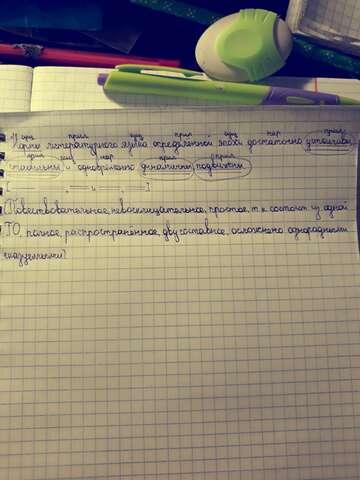 1) сущ прил сущ прил сущ нар прил
Нормы литературного языка определённой эпохи достаточно устойчивы,
прил союз нар прил прил
стабильны и одновременно динамичны, подвижны
[ , и , ]
(Повествовательное, невосклицательное, простое, т.к состоит из одной
ГО, полное, распространённое, двусоставное, осложнено однородными
сказуемыми)